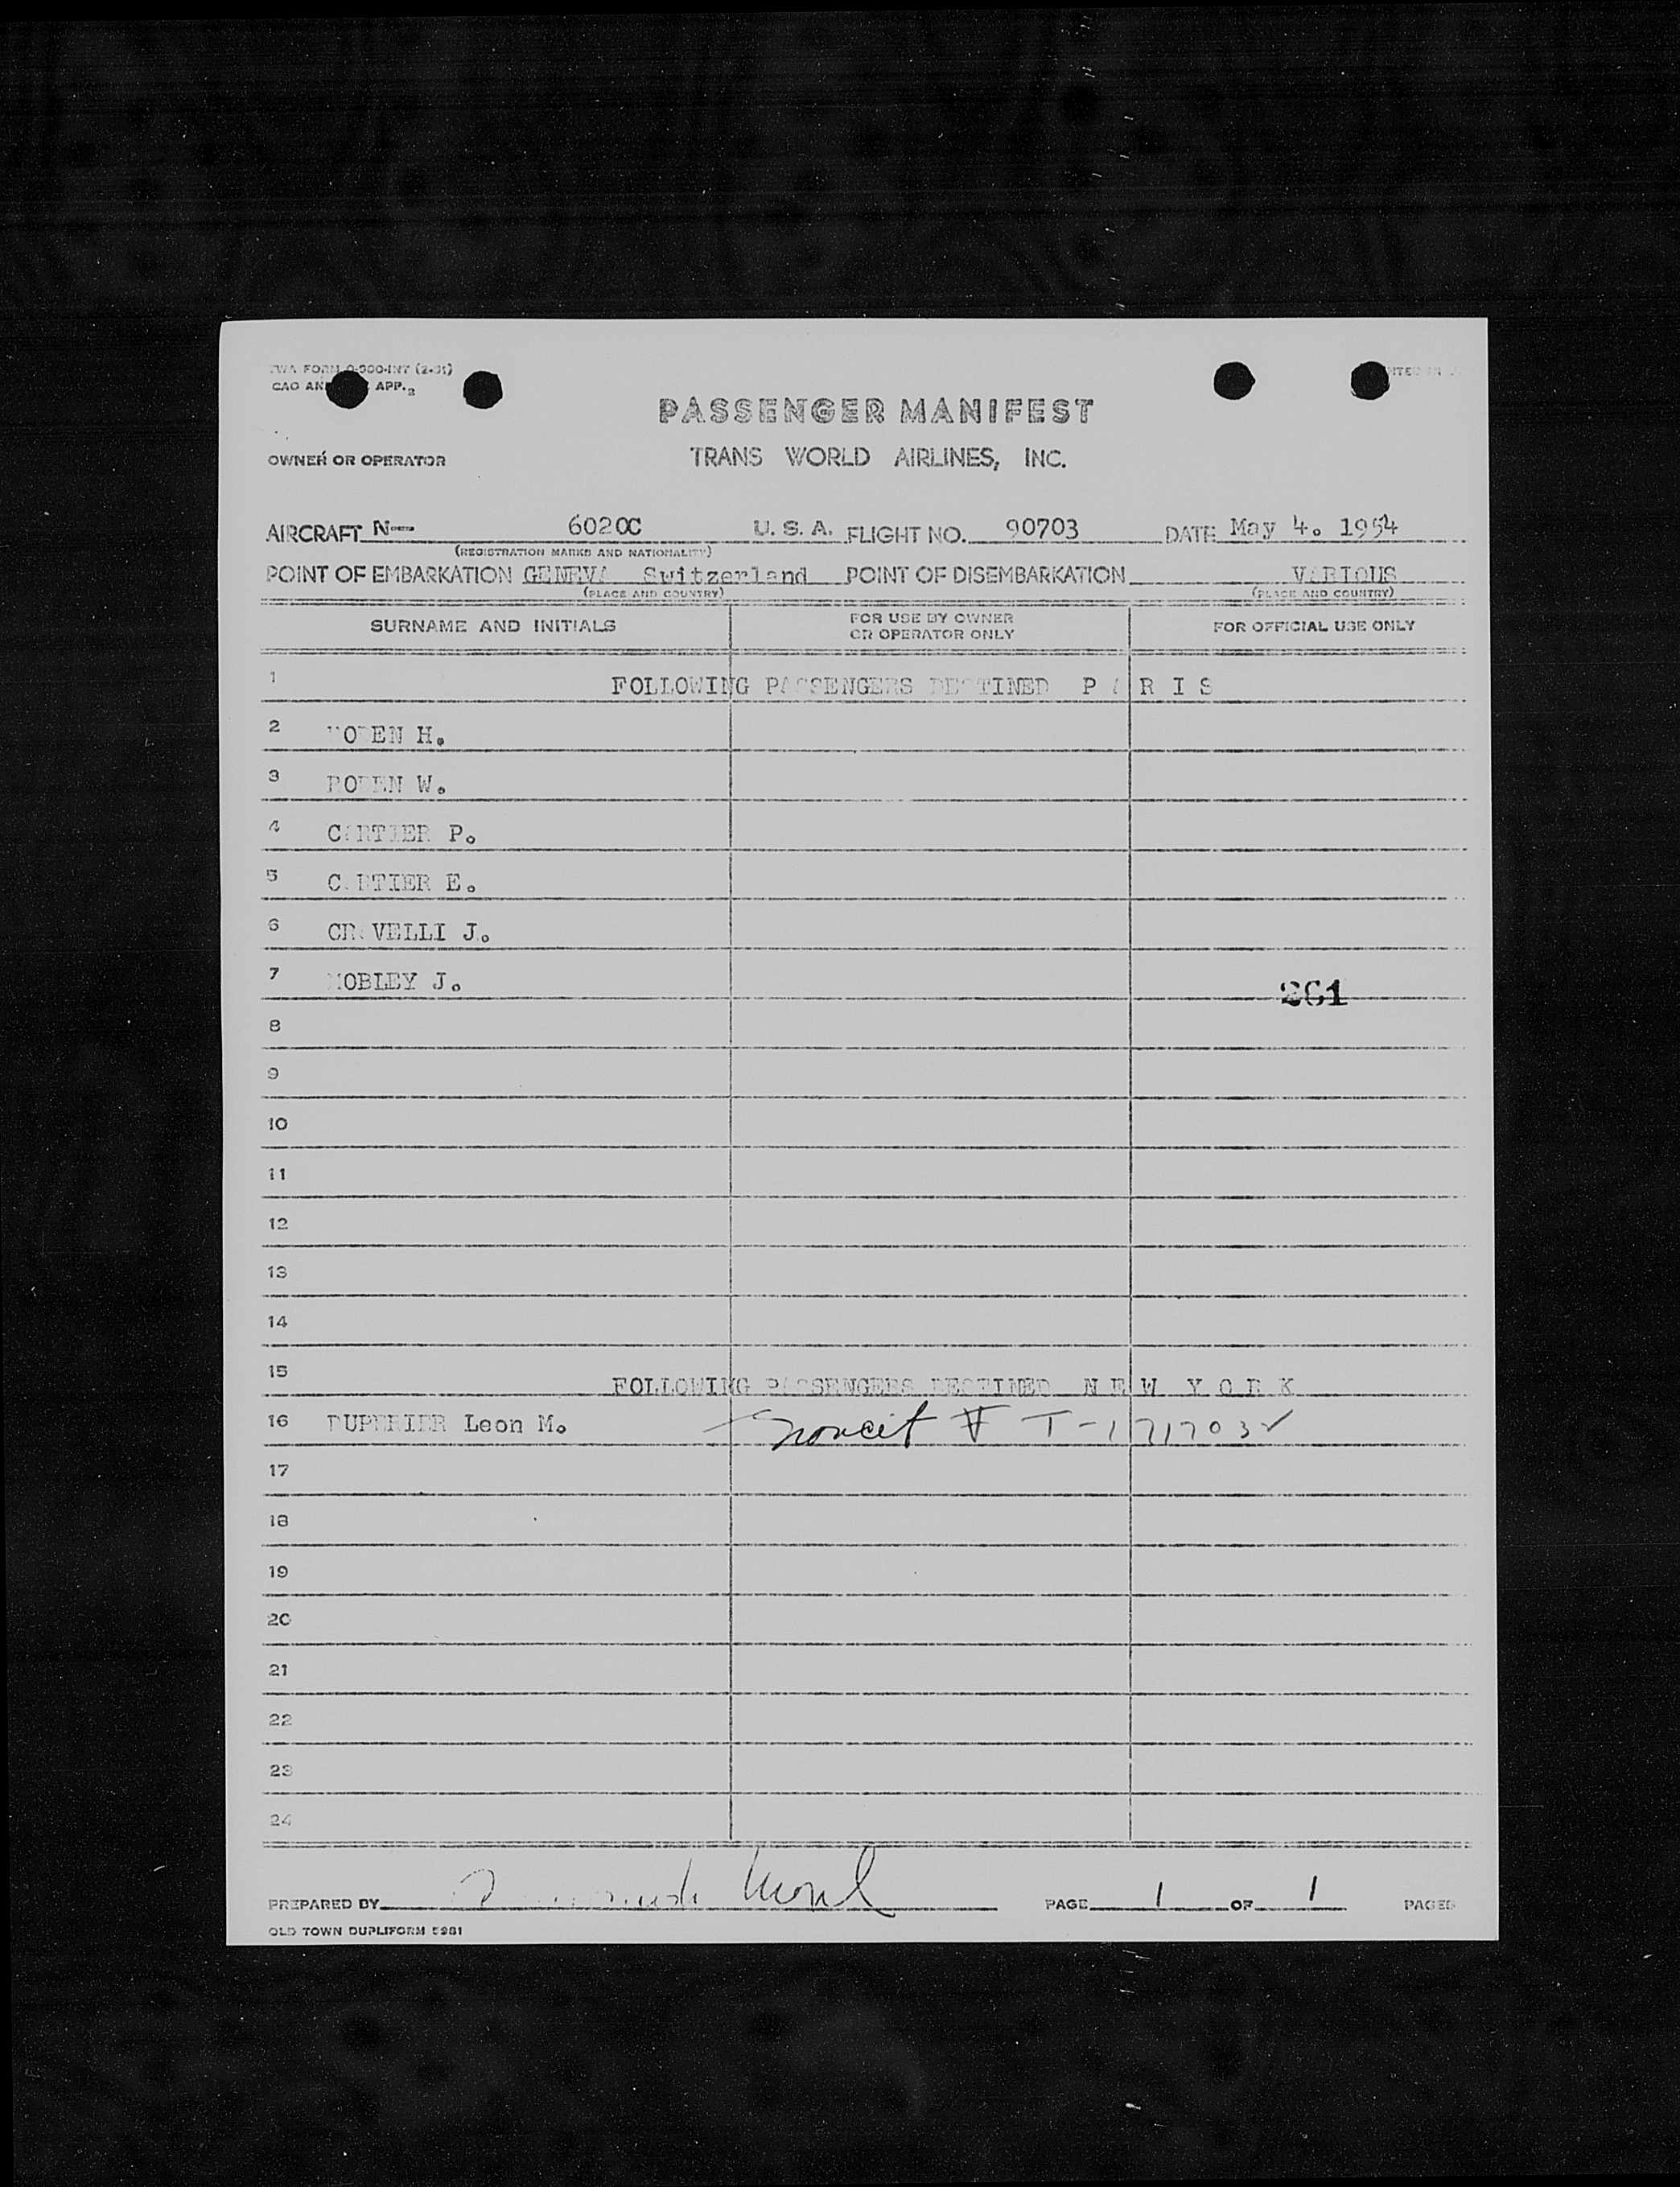 TWA FORM O-300-INT (2-51)
CAO APP. 2
PASSENGER MANIFEST
OWNER OR OPERATOR TRANS WORLD AIRLINES, INC.
AIRCRAFT N— 6020C U. S. A. FLIGHT NO. 90703 DATE May 4. 1954
(REGISTRATION MARKS AND NATIONALITY)
POINT OF EMBARKATION GENEVA Switzerland POINT OF DISEMBARKATION VARIOUS
(PLACE AND COUNTRY) (PLACE AND COUNTRY)
SURNAME AND INITIALS FOR USE BY OWNER OR OPERATOR ONLY FOR OFFICIAL USE ONLY
1 FOLLOWING PASSENGERS DESTINED P A R I S
2 H.
3 W.
4 CARTIER P.
5 CARTIER E.
6 CRAVELLI J.
7 MOBLEY J. 261
8
9
10
11
12
13
14
15 FOLLOWING PASSENGERS DESTINED N E W Y O R K
16 DUPERIER Leon M. noncit # T-1717032
17
18
19
20
21
22
23
24
PREPARED BY PAGE 1 OF 1 PAGES
OLD TOWN DUPLIFORM 5981